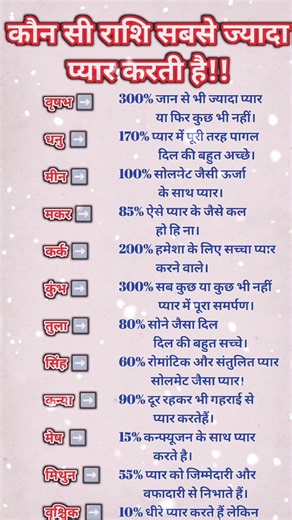 कौन सी राशि सबसे ज्यादा
प्यार करती है!!
वृषभ ➡ 300% जान से भी ज्यादा प्यार
या फिर कुछ भी नहीं।
धनु ➡ 170% प्यार में पूरी तरह पागल
दिल की बहुत अच्छे।
मीन ➡ 100% सोलनेट जैसी ऊर्जा
के साथ प्यार।
मकर ➡ 85% ऐसे प्यार के जैसे कल
हो हि ना।
कर्क ➡ 200% हमेशा के लिए सच्चा प्यार
करने वाले।
कुंभ ➡ 300% सब कुछ या कुछ भी नहीं
प्यार में पूरा समर्पण।
तुला ➡ 80% सोने जैसा दिल
दिल की बहुत सच्चे।
सिंह ➡ 60% रोमांटिक और संतुलित प्यार
सोलमेट जैसा प्यार!
कन्या ➡ 90% दूर रहकर भी गहराई से
प्यार करतेहैं।
मेष ➡ 15% कन्फ्यूजन के साथ प्यार
करते है।
मिथुन ➡ 55% प्यार को जिम्मेदारी और
वफादारी से निभाते हैं।
वृश्चिक ➡ 10% धीरे प्यार करते हैं लेकिन